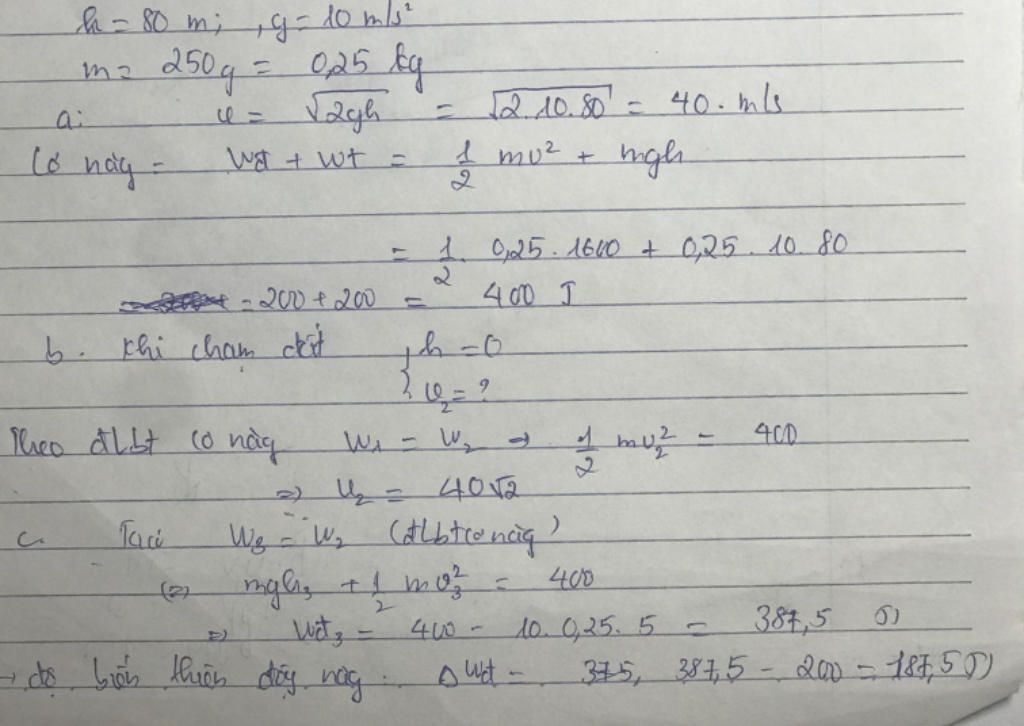 h = 80 m; , g = 10 m/s²
m = 250g = 0,25 kg
a: v = √2gh = √2.10.80 = 40. m/s
Cơ năg = Wđ + Wt = 1/2 mv² + mgh
= 1/2 . 0,25 . 1600 + 0,25 . 10 . 80
= 200 + 200 = 400 J
b. Khi chạm đất { h = 0
v₂ = ?
Theo đLbt cơ năg W₁ = W₂ → 1/2 mv₂² = 400
=> v₂ = 40√2
c. Ta có W₃ = W₂ (đLbt cơ năg)
(=) mgh₃ + 1/2 mv₃² = 400
=> Wđ₃ = 400 - 10. 0,25. 5 = 387,5 J)
→ độ biến thiên độg năg. ΔWđ = 375, 387,5 - 200 = 187,5 J)